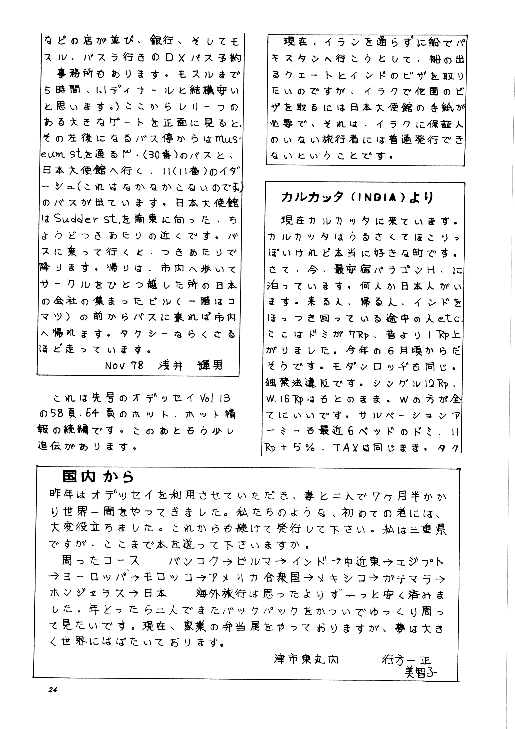 などの店が並び、銀行、そしてモ
スル、バスラ行きのDXバス予約
事務所もあります。モスルまで
5時間、1ディナールと結構安い
と思います。)ここからレリーフの
ある大きなゲートを正面に見ると、
その左後になるバス停からはMus-
eum st.を通る (30番)のバスと、
日本大使館へ行く、11(11番)のイダ
ーシュ(これはなかなかこないのです)
のバスが出ています。日本大使館
はSudder st.を南東に向った、ち
ょうどつきあたりの近くです。バ
スに乗って行くと、つきあたりで
降ります。帰りは、市内へ歩いて
サークルをひとつ越した所の日本
の会社の集まったビル(一階はコ
マツ)の前からバスに乗れば市内
へ帰れます。タクシーならくさる
ほど走っています。
Nov 78 浅井 輝男
これは先号のオデッセイVol 13
の58頁、64頁のホット、ホット情
報の続編です。このあともう少し
追伝があります。
現在、イランを通らずに船でパ
キスタンへ行こうとして、船の出
るクェートとインドのビザを取り
たいのですが、イラクで他国のビ
ザを取るには日本大使館の手紙が
必要で、それは、イラクに保証人
のいない旅行者には普通発行でき
ないということです。
カルカッタ(INDIA)より
現在カルカッタに来ています。
カルカッタはうるさくてほこりっ
ぽいけれど本当に好きな町です。
さて、今、最安宿パラゴンH.に
泊っています。何人か日本人がい
ます。来る人、帰る人、インドを
ほっつき回っている途中の人etc.
ここはドミが7Rp、昔より1Rp上
がりました。今年の6月頃からだ
そうです。モダンロッヂも同じ。
独禁法違反です。シングル12Rp、
W.16Rpはもとのまま。Wの方が全
てにいいです。サルベーションア
ーミーも最近6ベッドのドミ、11
Rp+5%.TAXは同じまま。タク
国内から
昨年はオデッセイを利用させていただき、妻と二人で7ヶ月半かか
り世界一周をやってきました。私たちのような、初めての者には、
大変役立ちました。これからも続けて発行して下さい。私は三重県
ですが、ここまで本を送って下さいますか。
周ったコース バンコク→ビルマ→インド→中近東→エジプト
→ヨーロッパ→モロッコ→アメリカ合衆国→メキシコ→ガテマラ→
ホンジュラス→日本 海外旅行は思ったよりずーっと安く済みま
した。年とったら二人でまたバックパックをかついでゆっくり周っ
て見たいです。現在、家業の弁当屋をやっておりますが、夢は大き
く世界にはばたいております。
津市東丸内 一正
美智子
24